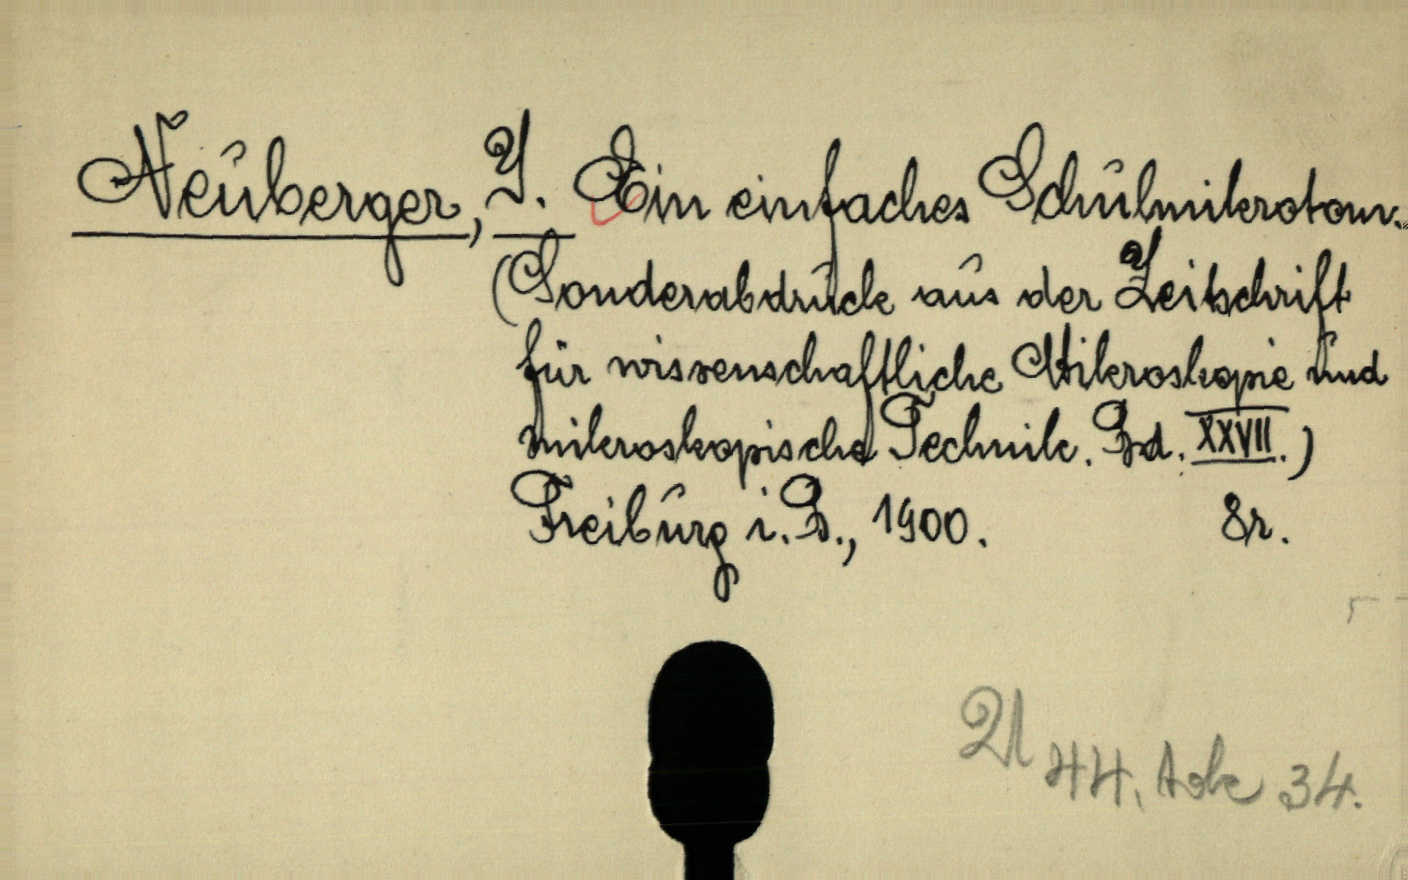 Neuberger, J. Ein einfaches Schulmikrotom.
(Sonderabdruck aus der Zeitschrift
für wissenschaftliche Mikroskopie und
mikroskopische Technik. Bd. XXVII.)
Freiburg i. B., 1900. 8r.
44, 34.